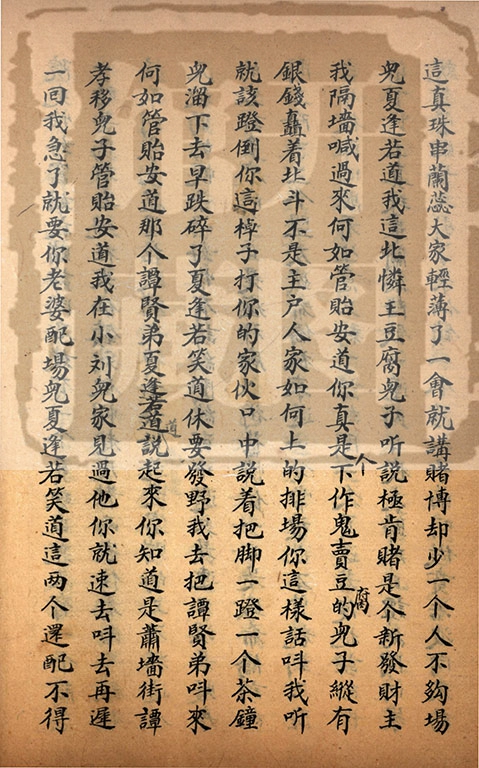 這真珠串蘭蕊大家輕薄了一會就講賭博却少一个人不夠場
兒夏逢若道我這北憐王豆腐兒子听說極肯賭是个新發財主
我隔墻喊過來何如管貽安道你真是个下作鬼賣豆腐的兒子縱有
銀錢矗着北斗不是主户人家如何上的排場你這樣話呌我听
就該蹬倒你這棹子打你的家伙口中說着把脚一蹬一个茶鐘
兒溜下去早跌碎了夏逢若笑道休要發野我去把譚賢弟呌來
何如管貽安道那个譚賢弟夏逢若道說起來你知道是蕭墻街譚
孝移兒子管貽安道我在小刘兒家見過他你就速去呌去再遲
一回我急了就要你老婆配場兒夏逢若笑道這两个還配不得